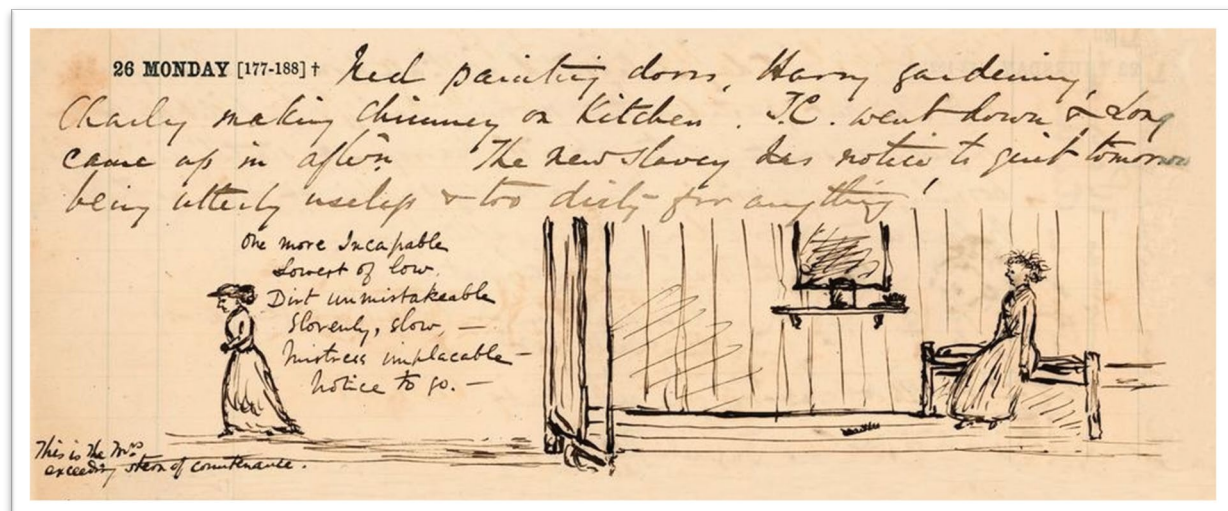 26 MONDAY [177-188] † Ned painting doors, Harry gardening,
Charley making Chimney on Kitchen. T.C. went down & Long
came up in aftn. The new slavey has notice to quit tomorrow
being utterly useless & too dirty for anything!
One more Incapable
Lowest of low.
Dirt unmistakeable
Slovenly, slow, —
Mistress implacable —
Notice to go. —
This is the Mrs
exceeding stern of countenance.